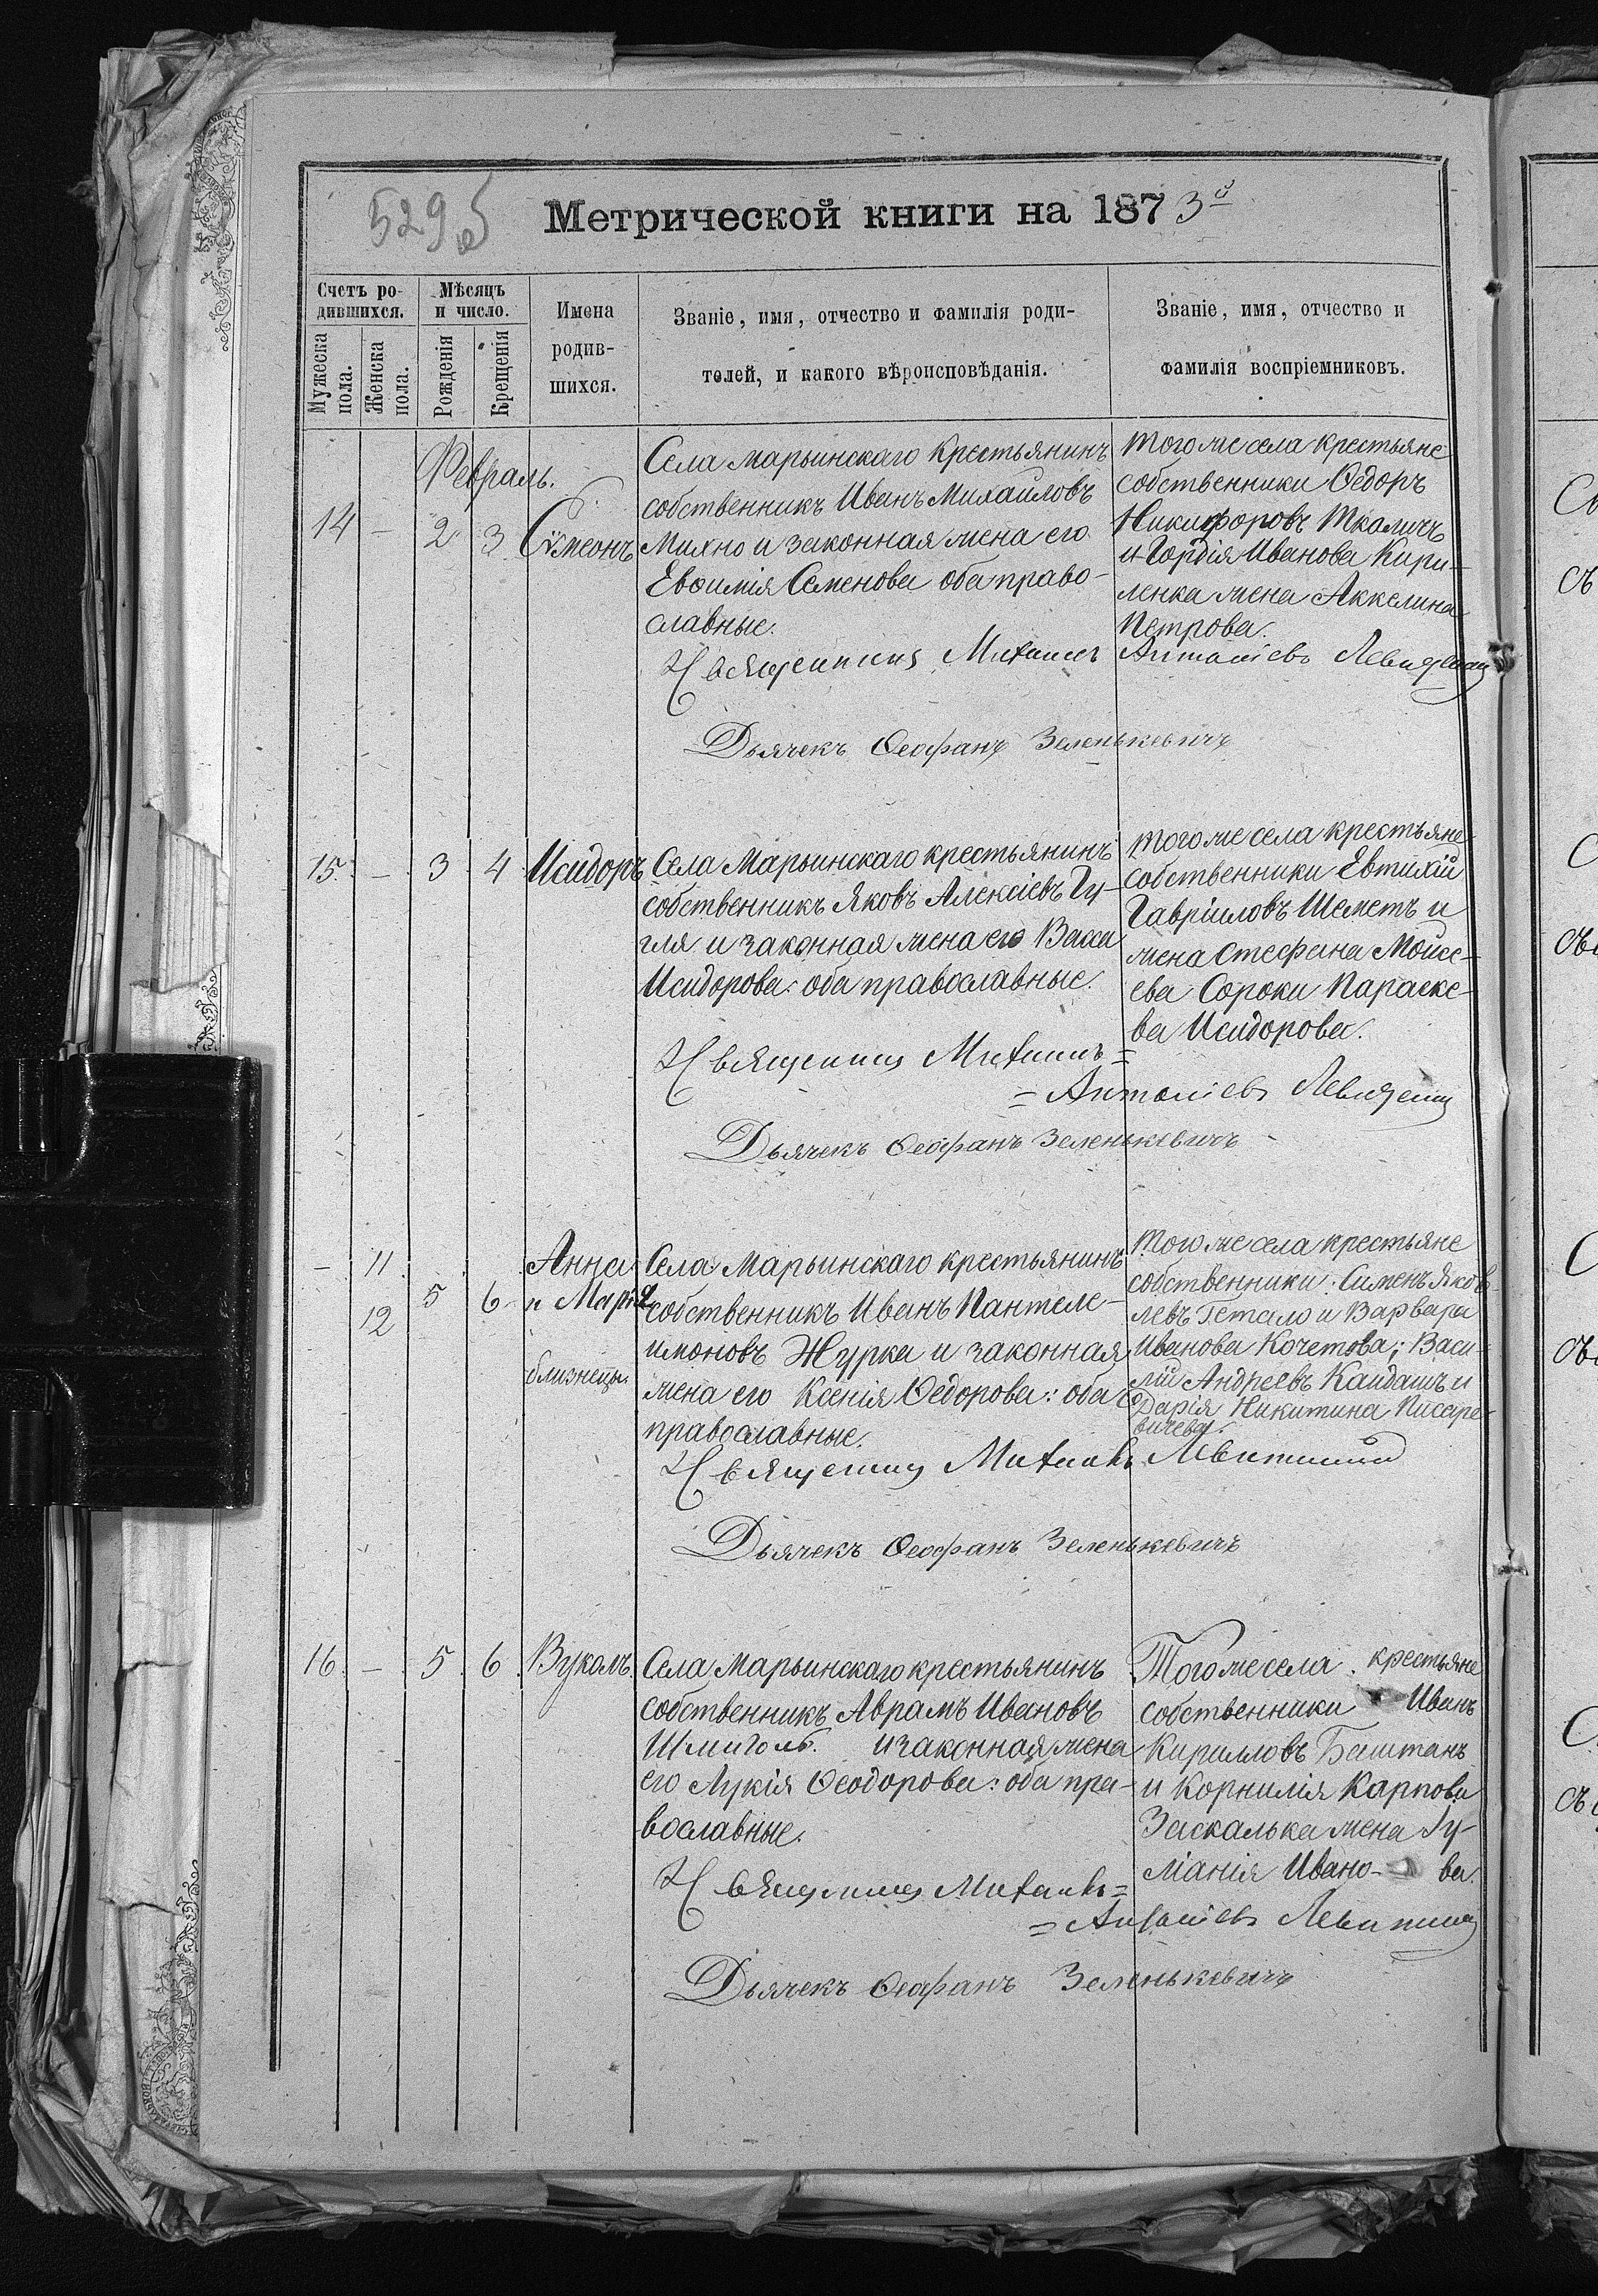 529
Метрической книги на 1873й
Счетъ ро-
дившихся.
Мѣсяцъ
и число.
Имена
родив-
шихся.
Званіе, имя, отчество и фамилія роди-
телей, и какого вѣроисповѣданія.
Званіе, имя, отчество и
фамилія воспріемниковъ.
Мужеска
пола.
Женска
пола.
Рожденія
Крещенія
Февраль.
14 - 2 3 Сѵмеонъ
Села Марьинскаго Крестьянинъ
собственникъ Иванъ Михаиловъ
Михно и законная жена его
Евѳимія Семенова оба право-
славные.
того же села крестьяне
собственники Ѳедоръ
Никифоровъ Ткаличъ
и Гордія Иванова Кири-
ленка жена Аккелина
Петрова.
Священникъ Михаилъ
Дьячекъ Ѳеофанъ Зеленькевичъ
15. - 3 4 Исидоръ
Села Марьинскаго крестьянинъ
собственникъ Яковъ Алексіевъ Гу-
гля и законная жена его Васса
Исидорова: оба православные.
того же села крестьяне
собственники Евтихій
Гавріиловъ Шеметъ и
жена Стефана Моисе-
ева Сороки Параске-
ва Исидорова.
Священникъ Михаилъ =
Дьячекъ Ѳеофанъ Зеленькевичъ
- 11 Анна
12 5 6 и Марія
близнецы.
Села Марьинскаго крестьянинъ
собственникъ Иванъ Пантеле-
имоновъ Журка и законная
жена его Ксенія Ѳедорова: оба
православные.
Того же села крестьяне
собственники: Сименъ Яков
левъ Гетало и Варвара
Иванова Кочетова; Васи-
лій Андреевъ Кайдашъ и
Дарія Никитина Писаре-
вичева.
Священникъ Михаилъ
Дьячекъ Ѳеофанъ Зеленькевичъ
16. - 5 6 Вуколъ.
Села Марьинскаго крестьянинъ
собственникъ Аврамъ Ивановъ
Шмиголь. и законная жена
его Лукія Ѳеодорова: оба пра-
вославные.
Того же села крестьяне
собственники Иванъ
Кирилловъ Баштанъ
и Корнилія Карпова
Заскалька жена Іу-
ліанія Ивано- ва.
Священникъ Михаилъ =
Дьячекъ Ѳеофанъ Зеленькевичъ